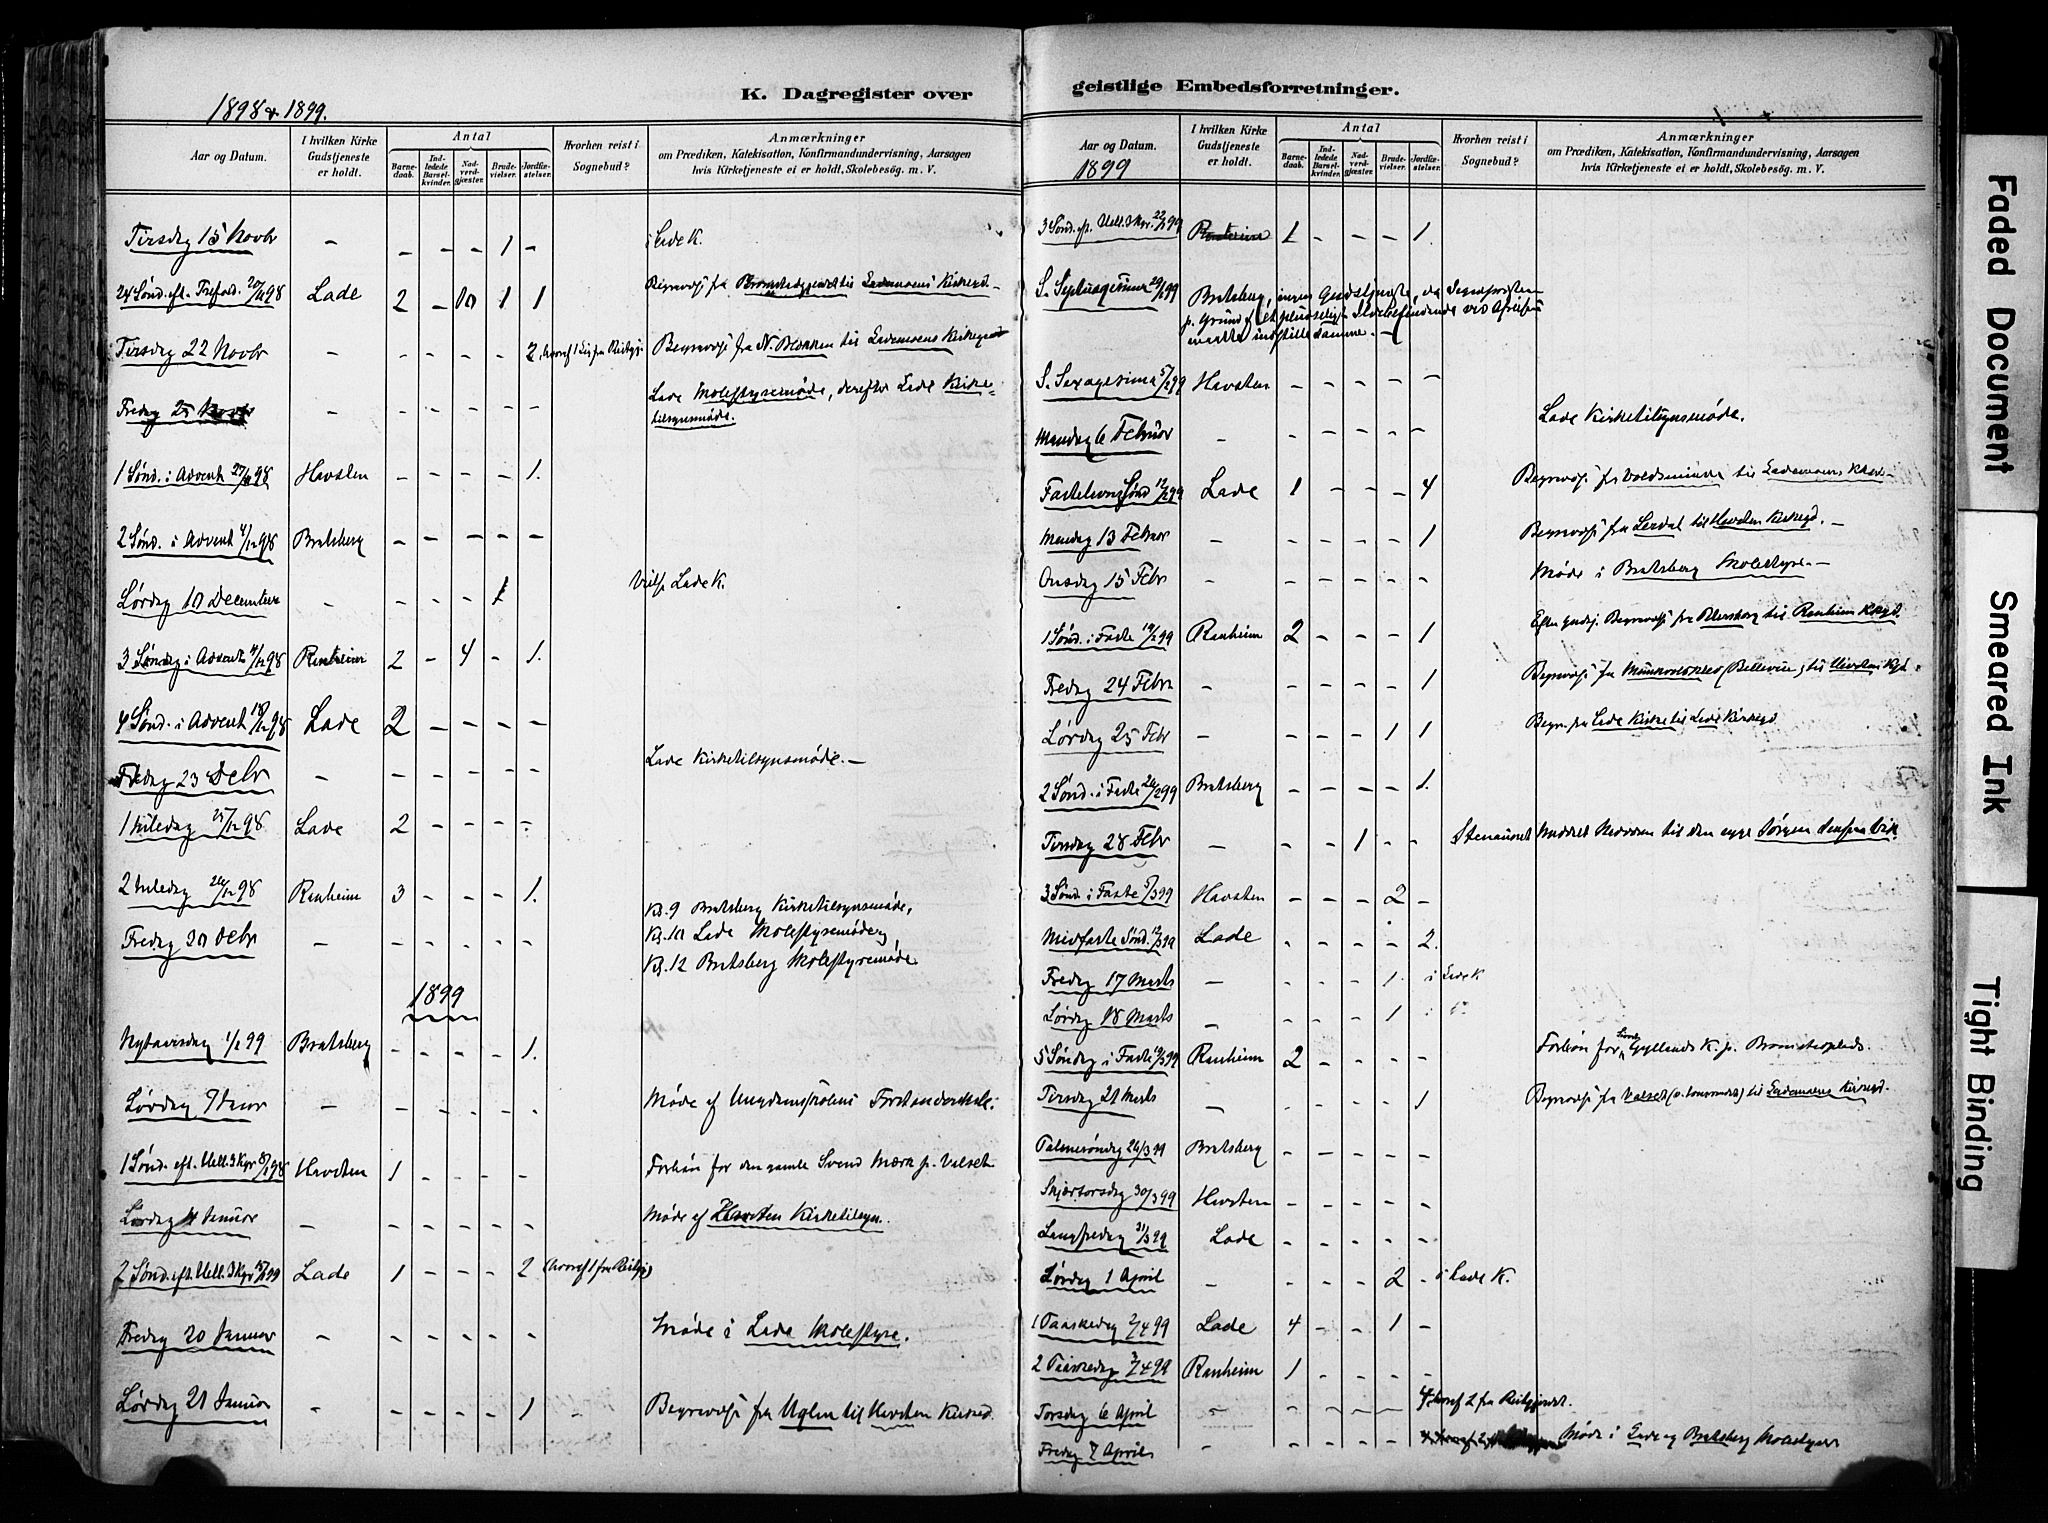 K. Dagregister over
1898 & 1899.
Aar og Datum.
I hvilken Kirke Gudstjeneste er holdt.
Antal
Barnedaab.
Indledede Barselkvinder.
Nadverdgjæster.
Brudevielser.
Jordfæstelser.
Hvorhen reist i Sognebud?
Anmærkninger
om Prædiken, Katekisation, Konfirmandundervisning, Aarsagen
hvis Kirketjeneste ei er holdt, Skolebesøg. m. V.
Tirsdag 15 Novbr - - - - 1 - i Lade K.
24 Sønd. eft. Trefold. 20/11 98 Lade 2 - 10 1 1 Kirkegd -
Tirsdag 22 Novbr - - - - - 2, hvoraf 1 Begravelse fra til Lademoens Kirkegård
Fredag 25 Novbr - - - - - - Lade Skolestyremøde, derefter Lade Kirke-
tilsynsmøde.
1 Sønd. i Advent 27/11 98 Havsten - - - - 1.
2 Sønd. i Advent 4/12 98 Bratsberg - - - - -
Lørdag 10 December - - - - 1 Vielse Lade K.
3 Søndag i Advent 11/12 98 Ranheim 2 - 4 - 1.
4 Sønd. i Advent 18/12 98 Lade 2 - - - -
Fredag 23 Debr - - - - - - Lade Kirketilsynsmøde. -
1 Juledag 25/12 98 Lade 2 - - - -
2 Juledag 26/12 98 Ranheim 3 - - - 1.
Kl. 9 Bratsberg Kirketilsynsmøde,
Fredag 30 Debr - - - - - - Kl. 10 Lade Skolestyremøde,
Kl. 12 Bratsberg Skolestyremøde.
1899
Nytaarsdag 1/1 99 Bratsberg - - - - 1.
Lørdag 7 Januar - - - - - - Møde af Ungdomsskolens Forstanderskab.
1 Sønd. eft. Hell. 3 Kgr. 8/1 98 Havsten 1 - - - - Forbøn for den gamle Svend Mærk p. Valset
Lørdag 14 Januar - - - - - - Møde af Havsten Kirketilsyn.
2 Sønd. eft. Hell. 3 Kgr 15/1 99 Lade 1 - - - 2 (hvoraf 1 fra
Fredag 20 Januar - - - - - - Møde i Lade Skolestyre.
Lørdag 21 Januar - - - - - 1 - Begravelse fra Uglen til Havsten Kirkegd.
geistlige Embedsforretninger.
Aar og Datum.
1899
I hvilken Kirke Gudstjeneste er holdt.
Antal
Barnedaab.
Indledede Barselkvinder.
Nadverdgjæster.
Brudevielser.
Jordfæstelser.
Hvorhen reist i Sognebud?
Anmærkninger
om Prædiken, Katekisation, Konfirmandundervisning, Aarsagen
hvis Kirketjeneste ei er holdt, Skolebesøg. m. V.
3 Sønd. ef. Hell. 3 Kgr. 22/1 99 Ranheim 1 - - - 1.
S. Septuagesima 29/1 99 Bratsberg, ingen Gudstjeneste, da Sognepresten
p. Grund af et pludseligt Ildebefindende ved Afreisen
maatte indstille samme. -
S. Sexagesima 5/2 99 Havsten - - - - -
Mandag 6 Februar - - - - - - Lade Kirketilsynsmøde.
Fastelavns Sønd 12/2 99 Lade 1 - - - 4 Begravelse fra Voldsminde til Lademoens
Mandag 13 Februar - - - - - 1 Begravelse fra Lerdal til Havsten Kirkegd. -
Onsdag 15 Febr - - - - - - Møde i Bratsberg Skolestyre. -
1 Sønd. i Faste 19/2 99 Ranheim 2 - - - 1 Efter Gudstj. Begravelse fra til Ranheim
Fredag 24 Febr - - - - - 1 Begravelse fra (Bellevue) til Havsten
Lørdag 25 Febr - - - - 1 1 Begr. fra Lade Kirke til Lade Kirkegd
2 Sønd. i Faste 26/2 99 Bratsberg - - - - 1.
Tirsdag 28 Febr - - - 1 - - Stenaunet Meddelt Nadveren til den syge Jørgen
3 Sønd i Faste 5/3 99 Havsten - - - 2 -
Midfaste Sønd. 12/3 99 Lade - - - - 2.
Fredag 17 Marts - - - - 1. i Lade K
Lørdag 18 Marts - - - - 1 -
5 Søndag i Faste 19/3 99 Ranheim 2 - - - - Forbøn for Gyllands K. p.
Tirsdag 21 Marts - - - - - 1 Begravelse fra Valset til Lademoens Kirkegd.
Palmesøndag 26/3 99 Bratsberg - - - - -
Skjærtorsdag 30/3 99 Havsten - - - - -
Langfredag 31/3 99 Lade - - - - -
Lørdag 1 April - - - - 2 - i Lade K.
1 Paaskedag 2/4 99 Lade 4 - - 1 -
2 Paaskedag 3/4 99 Ranheim 1 - - - -
Torsdag 6 April - - - - - 4, hvoraf 2 fra
Fredag 7 April - - - - - Møde i Lade og Bratsberg Skolestyrer
Faded Document
Smeared Ink
Tight Binding